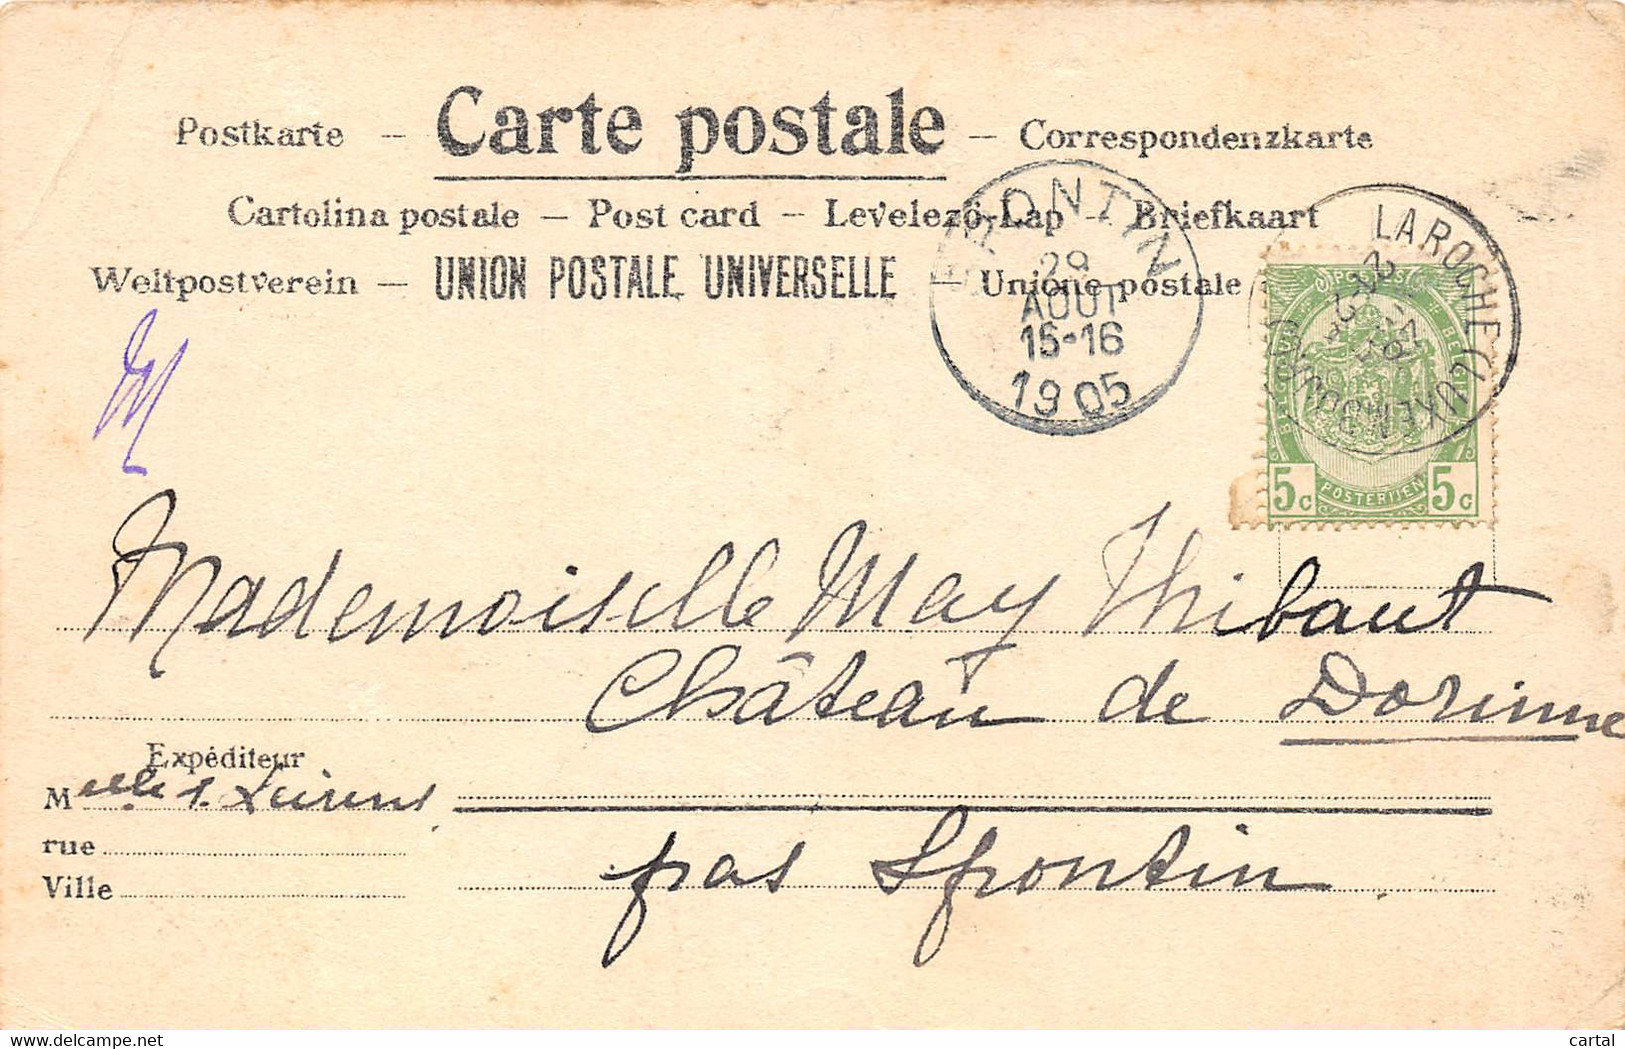 Postkarte – Carte postale – Correspondenzkarte
Cartolina postale – Post card – Levelező-Lap – Briefkaart
Weltpostverein – UNION POSTALE UNIVERSELLE – Unione postale
SPONTIN
29
AOUT
15-16
1905
LAROCHE (LUXEMBOURG)
POSTES
BELGIQUE
BELGIE
5c POSTERIJEN 5c
M
Mademoiselle May Thibaut
Château de Dorinne
Expéditeur
Melle
rue
Ville
pas Spontin
delcampe.net
cartal